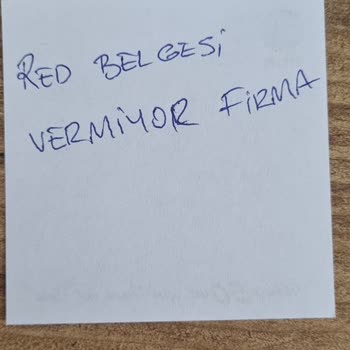 RED BELGESi
VERMiYOR FiRMA